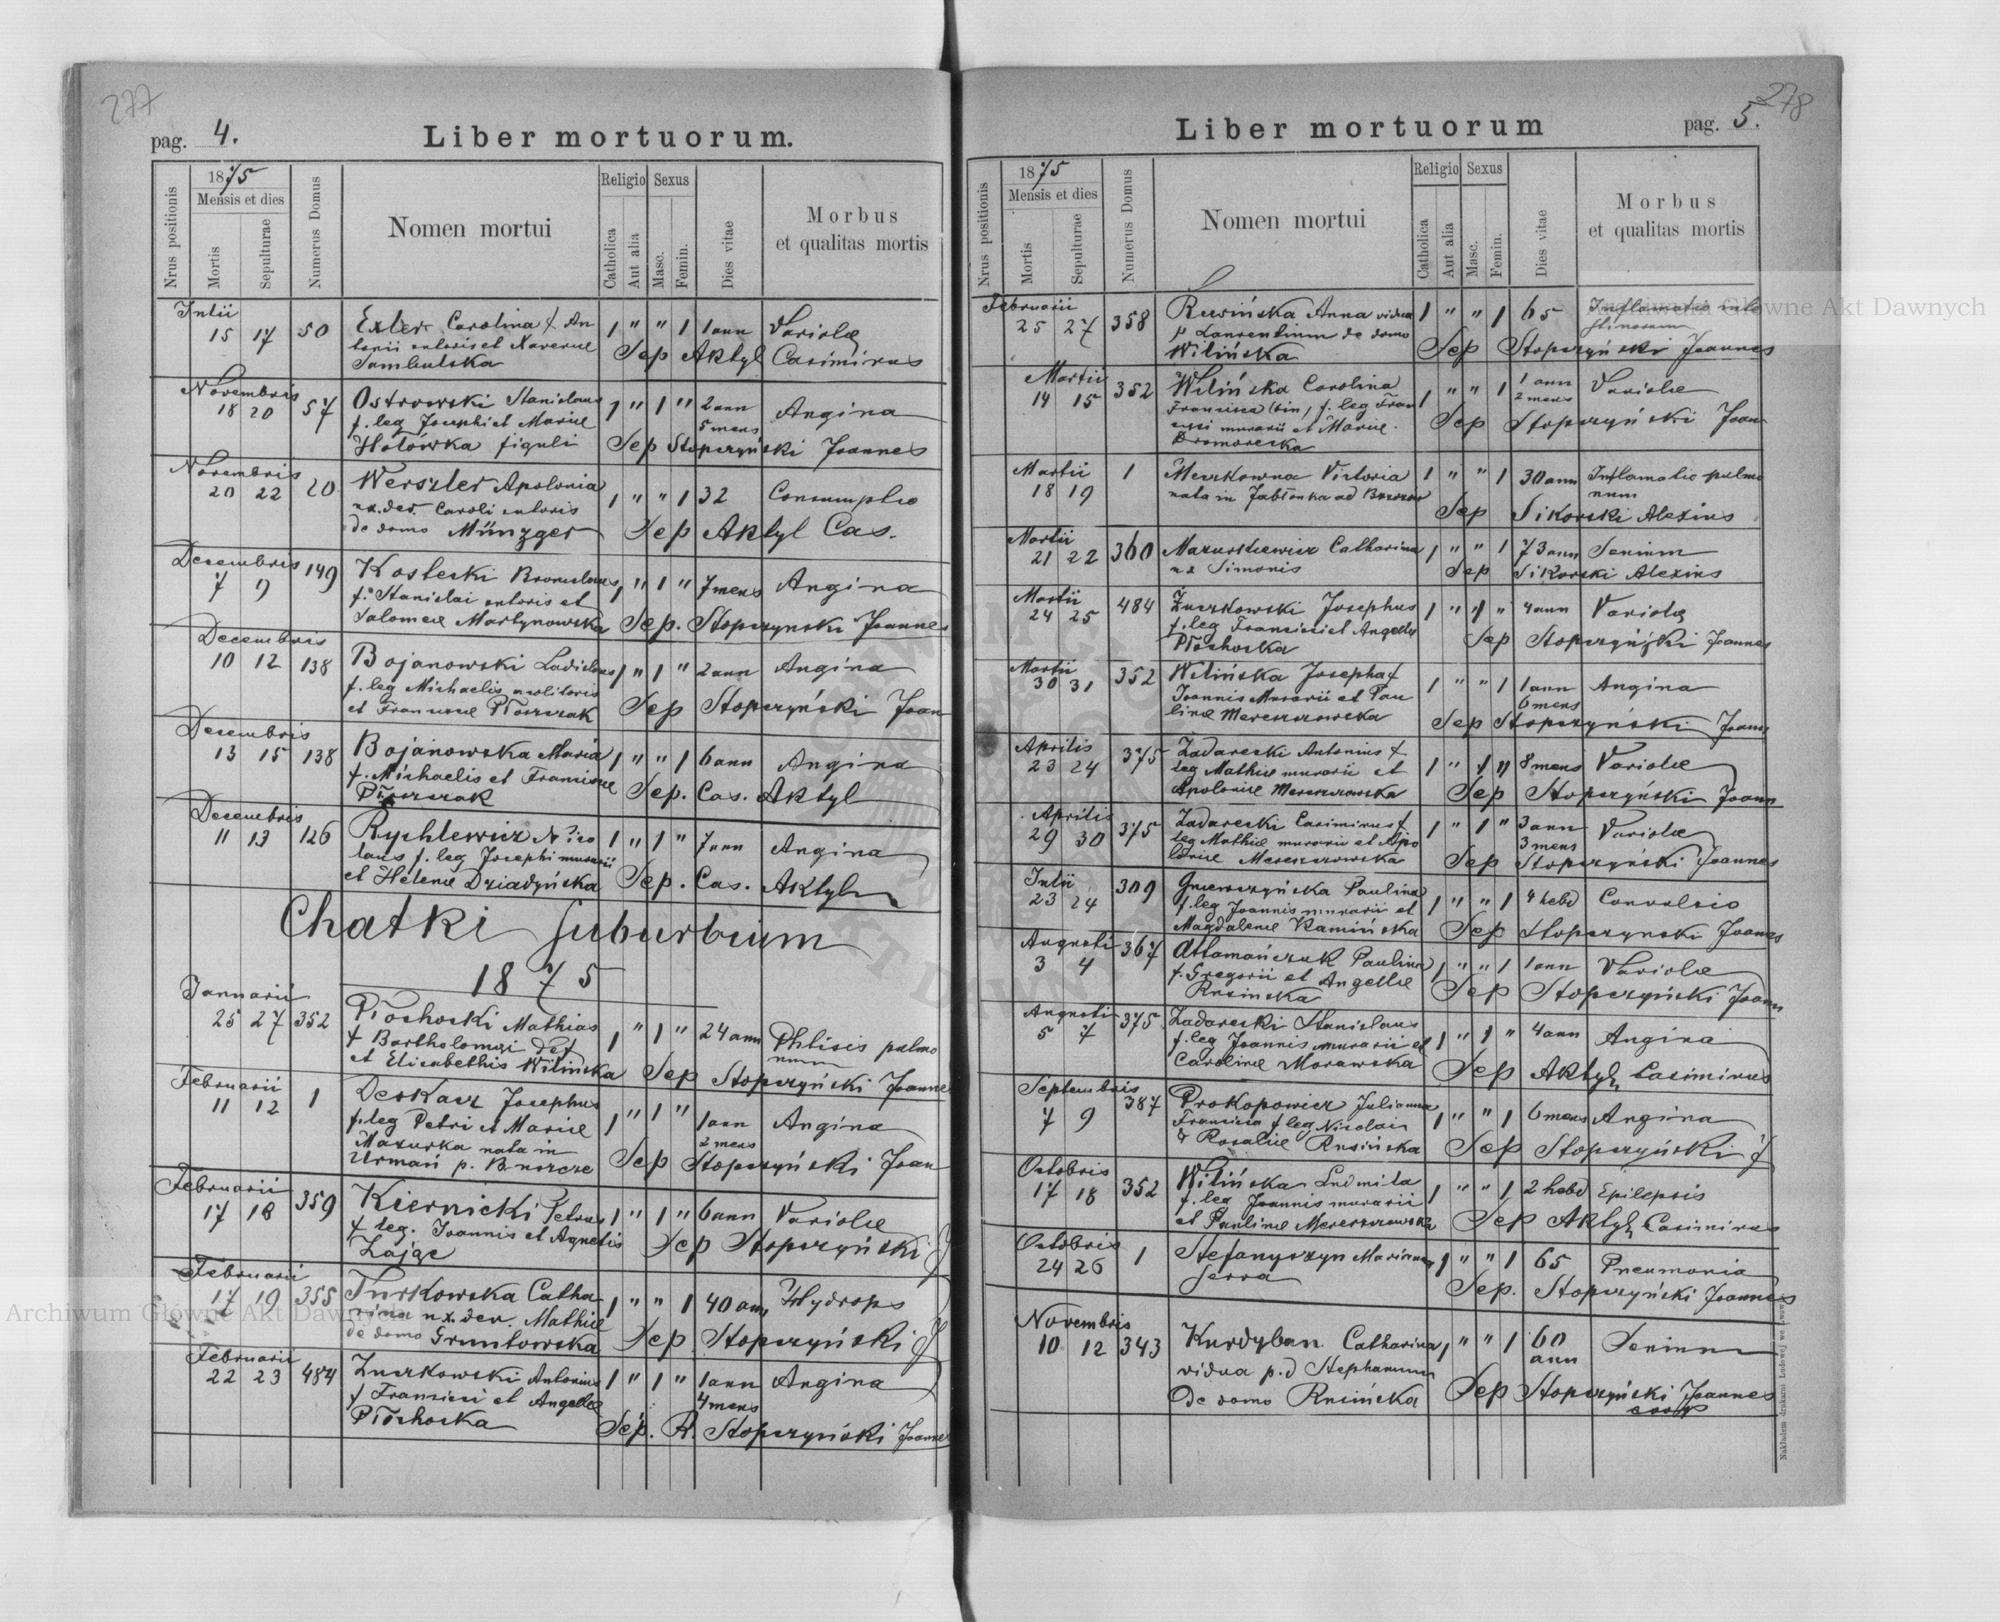 277
pag. 4.
Liber mortuorum.
Nrus positionis
1875
Mensis et dies
Mortis
Sepulturae
Numerus Domus
Nomen mortui
Religio
Catholica
Aut alia
Sexus
Masc.
Femin.
Dies vitae
Morbus
et qualitas mortis
15 17 50 Exler Carolina f. An 1 " " 1 1 ann Variolae
Sep Aktyl Casimirus
Novembris
18 20 57 Ostrowski Stanislaus 1 " 1 " 2 ann Angina
f. leg Josephi et Mariae 5 mens
Hołówka figuli Sep Stopczyński Joannes
Novembris
20 22 20 Werszler Apolonia 1 " " 1 32
ux. def. Caroli
de domo Münzger Sep Aktyl Cas.
Decembris
7 9 149 Kostecki Bronislaus 1 " 1 " 7 mens Angina
f. Stanislai et
Salomeae Martynowska Sep. Stopczynski Joannes
Decembris
10 12 138 Bojanowski Ladislaus 1 " 1 " 2 ann Angina
f. leg Michaelis
et Franciscae Ptoszczak Sep Stopczyński Joan
Decembris
13 15 138 Bojanowska Maria 1 " " 1 6 ann Angina
f. Michaelis et Franciscae
Ptoszczak Sep. Cas. Aktyl
Decembris
11 13 126 Rychlewicz Nico 1 " 1 " 7 ann Angina
laus f. leg Josephi murarii
et Helenae Dziadyńska Sep. Cas. Aktyl
Chatki suburbium
1875
Januarii
25 27 352 Płoshoski Mathias 1 " 1 " 24 ann Phtisis pulmo
f Bartholomei def num
et Elisabethis Wilińska Sep Stopczyński Joannes
Februarii
11 12 1 Deskacz Josephus 1 " 1 " 1 ann Angina
f. leg Petri et Mariae 2 mens
Mazurka nata in
Urmań p. Sep Stopczyński Joan
Februarii
17 18 359 Kiernicki Petrus 1 " 1 " 6 ann Variolae
f leg. Joannis et Agnetis
Zając Sep Stopczyński J
Februarii
17 19 355 Turkowska Catha 1 " " 1 40 ann Hydrops
rina ux. Mathiae
de domo Gruntowska Sep Stopczyński J
Februarii
22 23 484 Zuczkowski Antonius 1 " 1 " 1 ann Angina
f Francisci et Angelae 4 mens
Płoshoska Sep. R. Stopczyński Joannes
278
Liber mortuorum
pag. 5.
Nrus positionis
1875
Mensis et dies
Mortis
Sepulturae
Numerus Domus
Nomen mortui
Religio
Catholica
Aut alia
Sexus
Masc.
Femin.
Dies vitae
Morbus
et qualitas mortis
Februarii
25 27 358 Anna vidua 1 " " 1 65 Inflamatio inte
p Laurentium de domo stinorum
Wilińska Sep Stopczyński Joannes
Martii
14 15 352 Wilińska Carolina 1 " " 1 1 ann Variolae
Francisca (bin) f. leg Fran 2 mens
cisci murarii et Mariae Sep Stopczyński Joan
Martii
18 19 1 Victoria 1 " " 1 30 ann Inflamatio pulmo
nata in Jabłonka ad num
Sep Sikorski Alexius
Martii
21 22 360 Mazurkiewicz Catharina 1 " " 1 73 ann Senium
ux Simonis Sep Sikorski Alexius
Martii
24 25 484 Zuczkowski Josephus 1 " 1 " 4 ann Variolae
f. leg Francisci et Angelae
Płoshoska Sep Stopczyński Joannes
Martii
30 31 352 Wilińska Josepha f 1 " " 1 1 ann Angina
Joannis Murarii et Pau 6 mens
linae Mereszczowska Sep Stopczyński Joann
Aprilis
23 24 375 Zadarecki Antonius f 1 " 1 " 8 mens Variolae
leg Mathiae murarii et
Apoloniae Mereszczowska Sep Stopczyński Joann
Aprilis
29 30 375 Zadarecki Casimirus f 1 " 1 " 3 ann Variolae
leg Mathiae murarii et Apo 3 mens
loniae Mereszczowska Sep Stopczyński Joannes
23 24 309 Gniewczyńska Paulina 1 " " 1 4 hebd Convulsio
f. leg Joannis murarii et
Magdalenae Kamińska Sep Stopczynski Joannes
Augusti
3 4 367 Attamańczuk Paulina 1 " " 1 1 ann Variolae
f. Gregorii et Angelae
Rusinska Sep Stopczyński Joann
Augusti
5 7 375 Zadarecki Stanislaus 1 " 1 " 4 ann Angina
f. leg Joannis murarii et
Carolinae Morawska Sep Aktyl Casimirus
Septembris
7 9 387 Prokopowicz Julianna 1 " " 1 6 mens Angina
Francisca f leg Nicolai
& Rosaliae Rusińska Sep Stopczyński J
Octobris
17 18 352 Wilińska Ludmila 1 " " 1 2 hebd Epilepsis
f. leg Joannis murarii
et Paulinae Mereszczowska Sep Aktyl Casimirus
Octobris
24 26 1 Stefanyszyn Marianna 1 " " 1 65 Pneumonia
Serva Sep. Stopczyński Joannes
Novembris
10 12 343 Kurdyban Catharina 1 " " 1 60 Senium
vidua p. d Stephanum ann
de domo Rusińska Sep Stopczyński Joannes
coop
Nakładem drukarni Ludowej we Lwowie
Archiwum Główne Akt Dawnych
Archiwum Główne Akt Dawnych